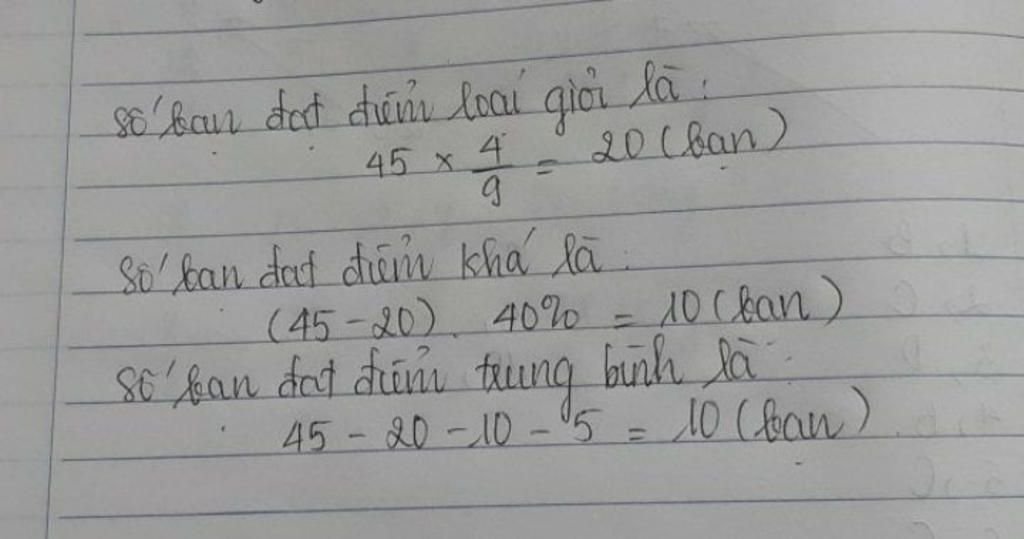 Số bạn đạt điểm loại giỏi là:
45 × 4/9 = 20 (bạn)
Số bạn đạt điểm khá là:
(45 - 20). 40% = 10 (bạn)
Số bạn đạt điểm trung bình là:
45 - 20 - 10 - 5 = 10 (bạn)